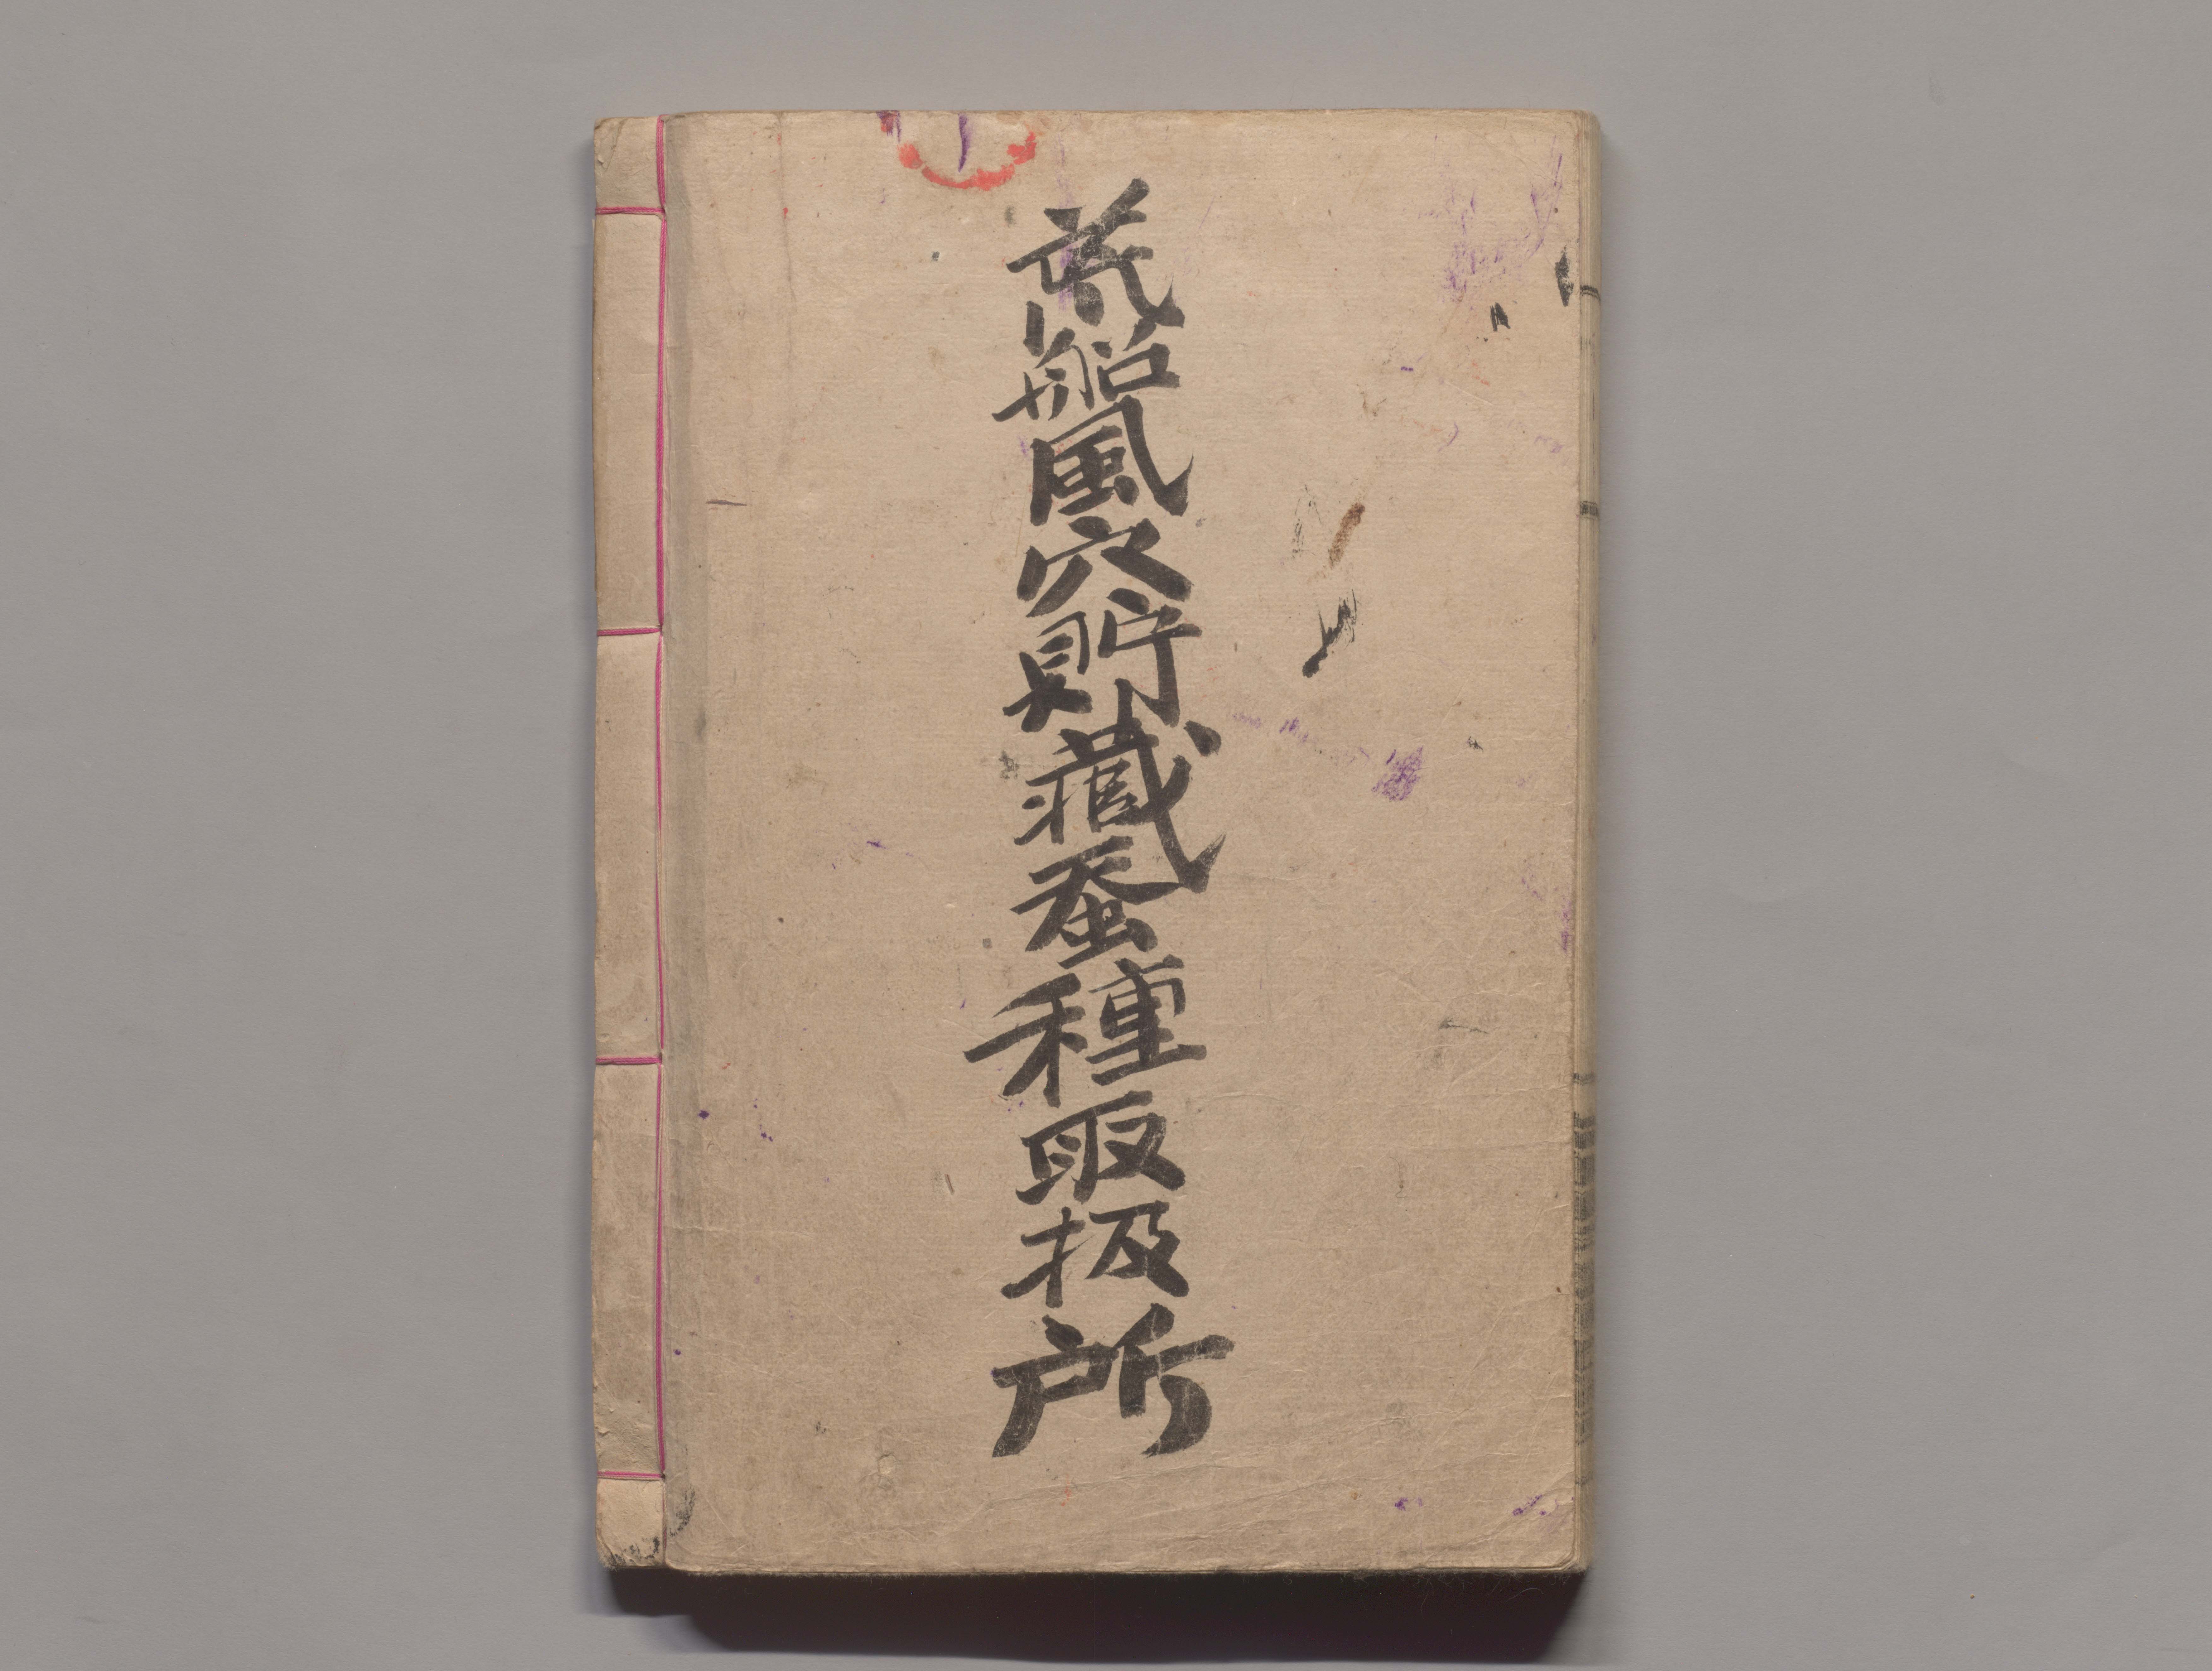 荒船風穴貯蔵蚕種取扱所